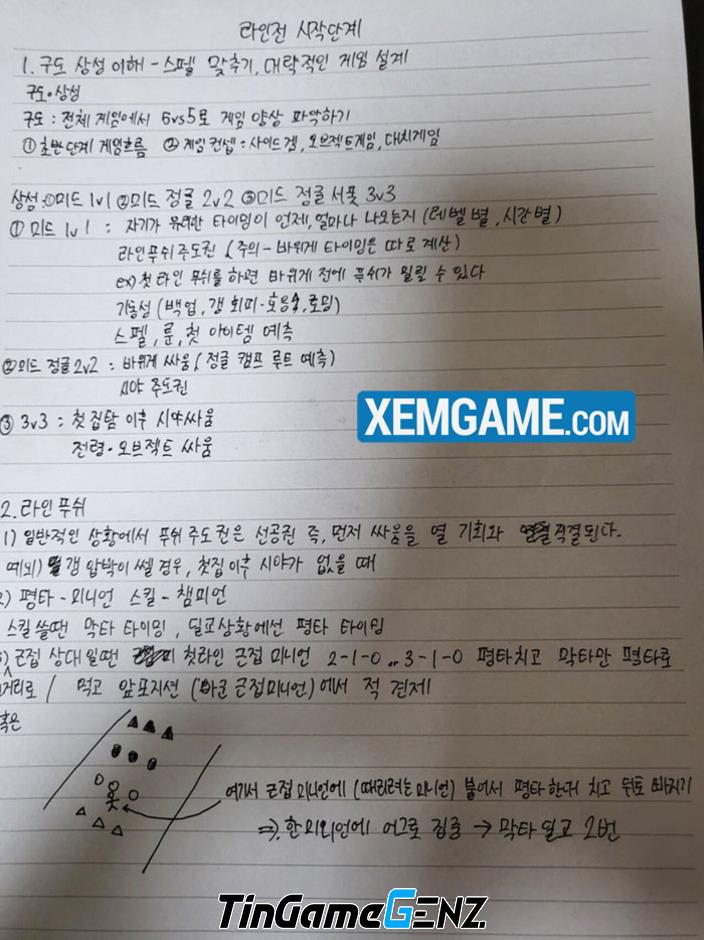 라인전 시작단계
1. 구도 상성 이해 - 스펠 맞추기, 대략적인 게임 설계
구도·상성
구도 : 전체 게임에서 5vs5로 게임 양상 파악하기
① 초반 단계 게임흐름 ② 게임 컨셉 : 사이드겜, 오브젝트게임, 대치게임
상성 : ①미드 1v1 ②미드 정글 2v2 ③미드 정글 서폿 3v3
① 미드 1v1 : 자기가 유리한 타이밍이 언제, 얼마나 나오는지 (레벨 별, 시간 별)
라인푸쉬 주도권 (주의 - 바위게 타이밍은 따로 계산)
ex) 첫 라인 푸쉬를 하면 바위게 전에 푸쉬가 밀릴 수 있다
기동성 (백업, 갱 회피·호응, 로밍)
스펠, 룬, 첫 아이템 예측
② 미드 정글 2v2 : 바위게 싸움 (정글 캠프 루트 예측)
시야 주도권
③ 3v3 : 첫 집탐 이후 시야싸움
전령·오브젝트 싸움
XEMGAME.COM
2. 라인 푸쉬
1) 일반적인 상황에서 푸쉬 주도권은 선공권 즉, 먼저 싸움을 열 기회와 직결된다.
예외) 갱 압박이 쎌 경우, 첫집 이후 시야가 없을 때
2) 평타 - 미니언 스킬 - 챔피언
스킬 쓸땐 막타 타이밍, 딜교상황에선 평타 타이밍
3) 근접 상대 일땐 첫라인 근접 미니언 2-1-0 or 3-1-0 평타치고 막타만 평타로
거리로 / 먹고 앞포지션 (아군 근접미니언)에서 적 견제
혹은
여기서 근접 미니언에 (때리려는 미니언) 붙어서 평타 한대 치고 뒤로 빠지기
⇒ 한 미니언에 어그로 집중 → 막타 딜교 2번
TinGameGENZ